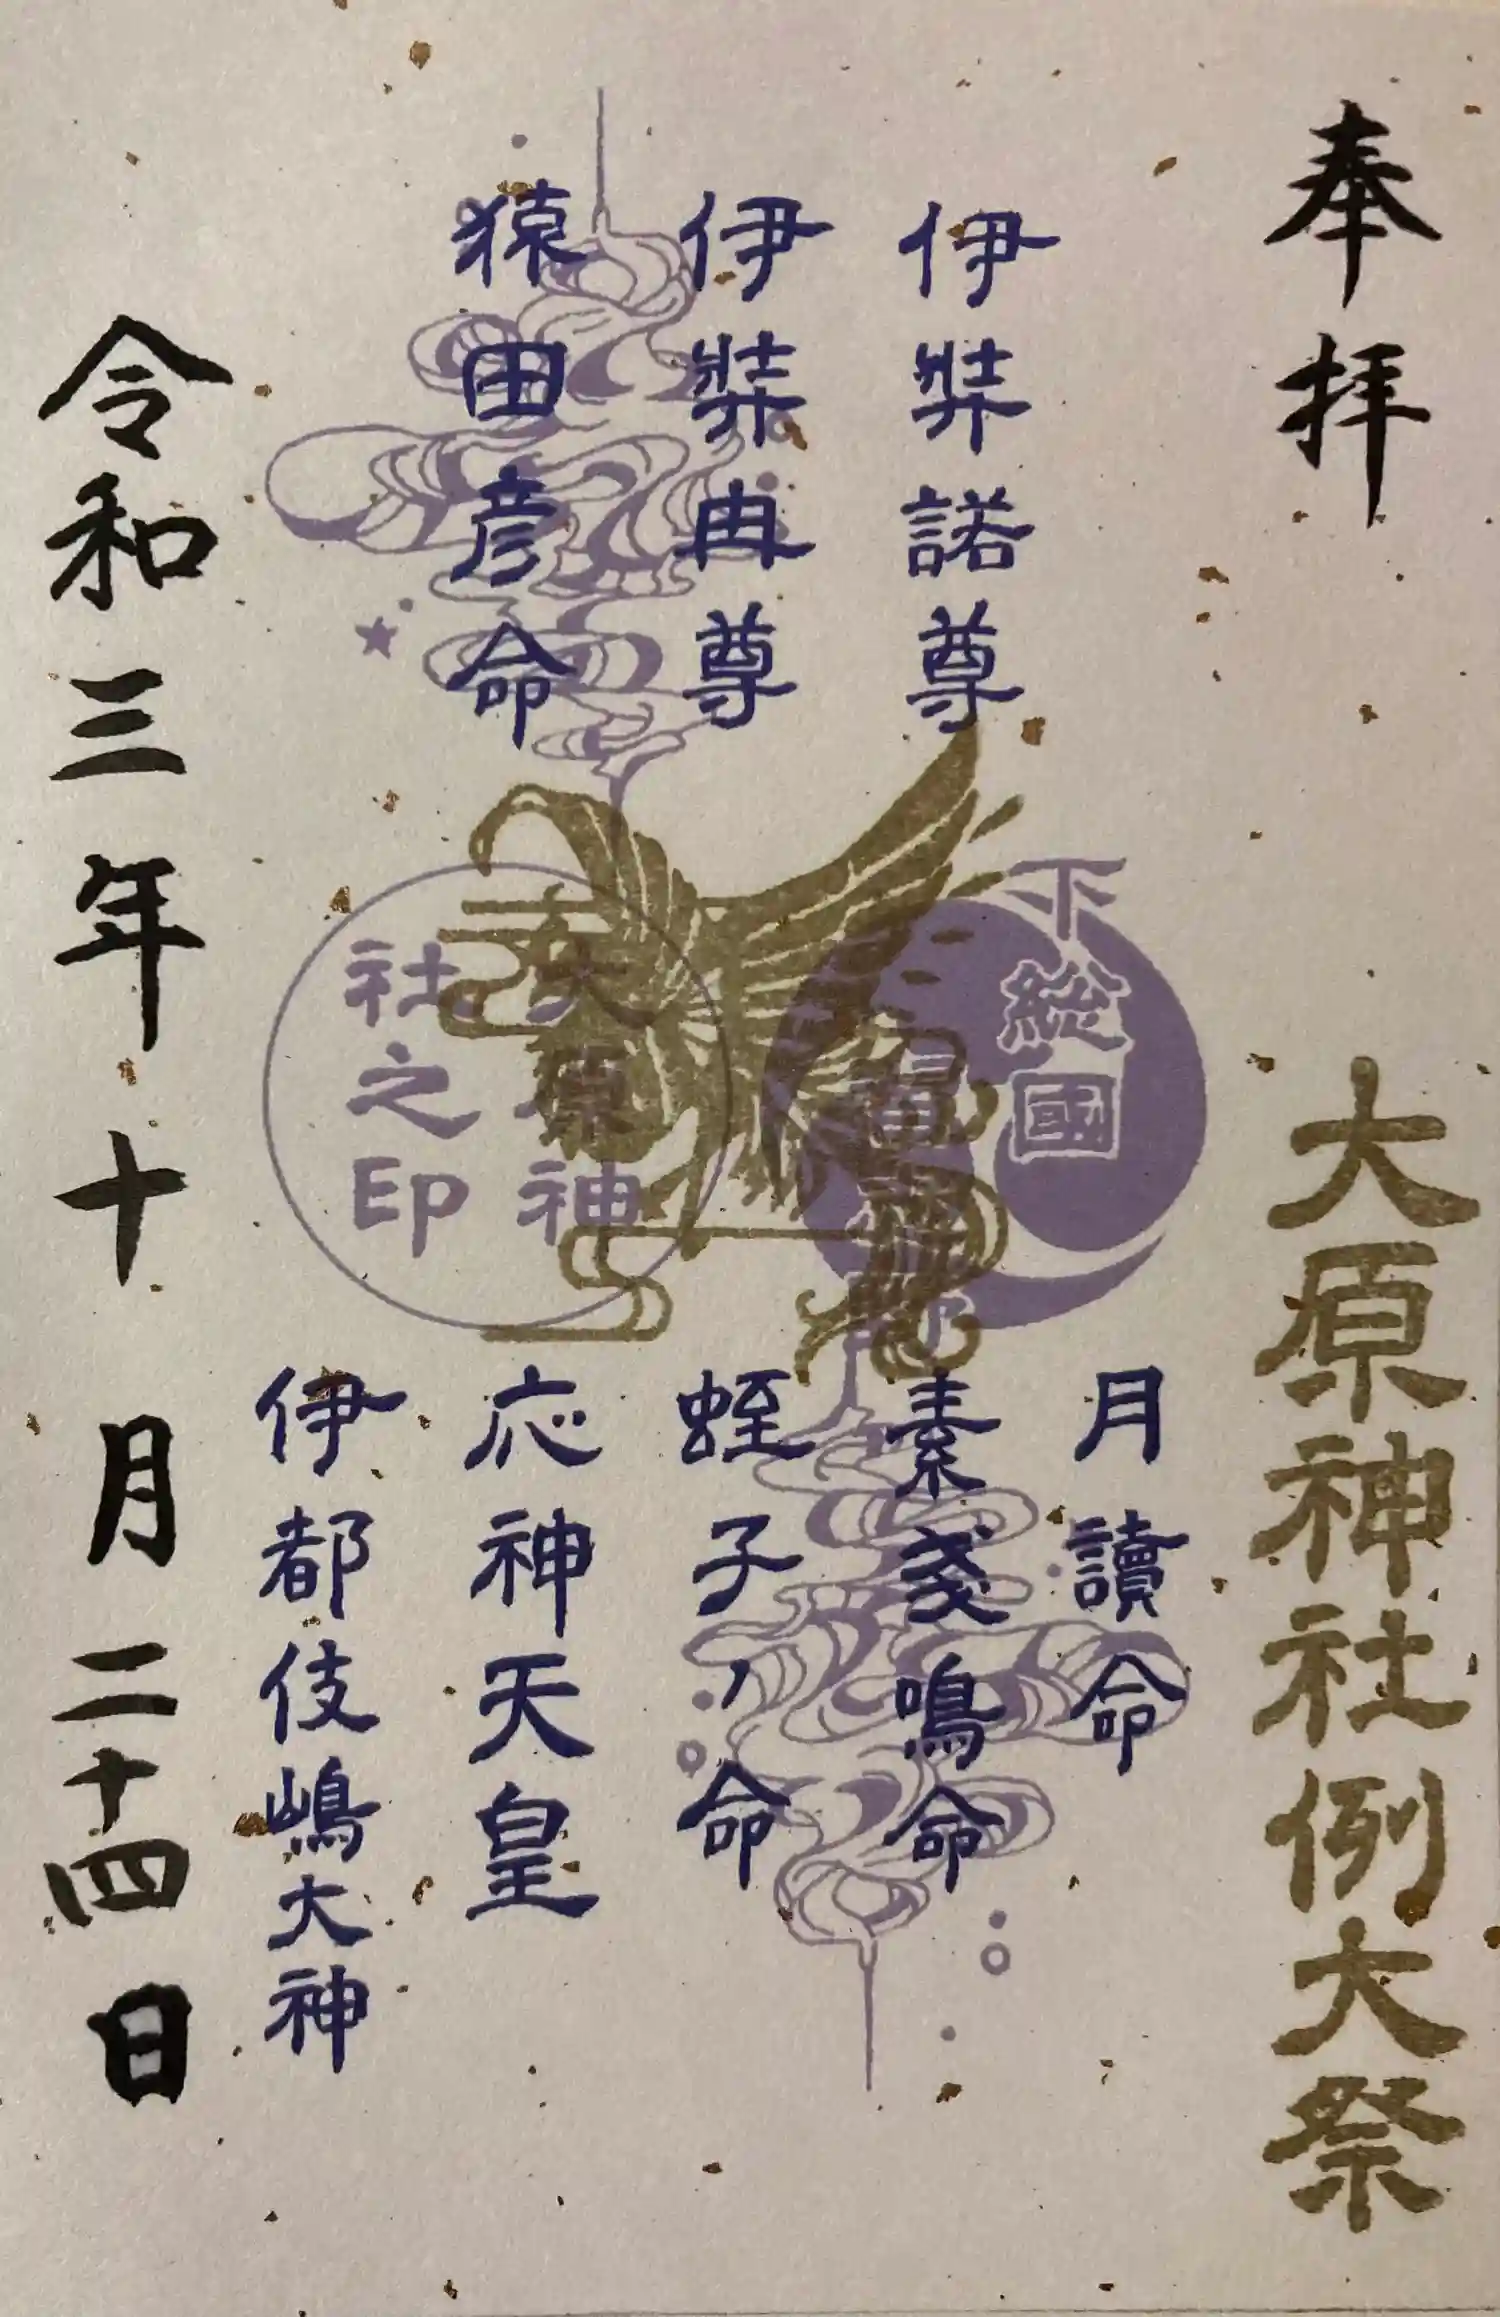 奉拝
大原神社例大祭
伊弉諾尊
伊弉冉尊
猿田彦命
下総國
大原神
社之印
月讀命
素戔鳴命
蛭子ノ命
応神天皇
伊都伎嶋大神
令和三年十月二十四日